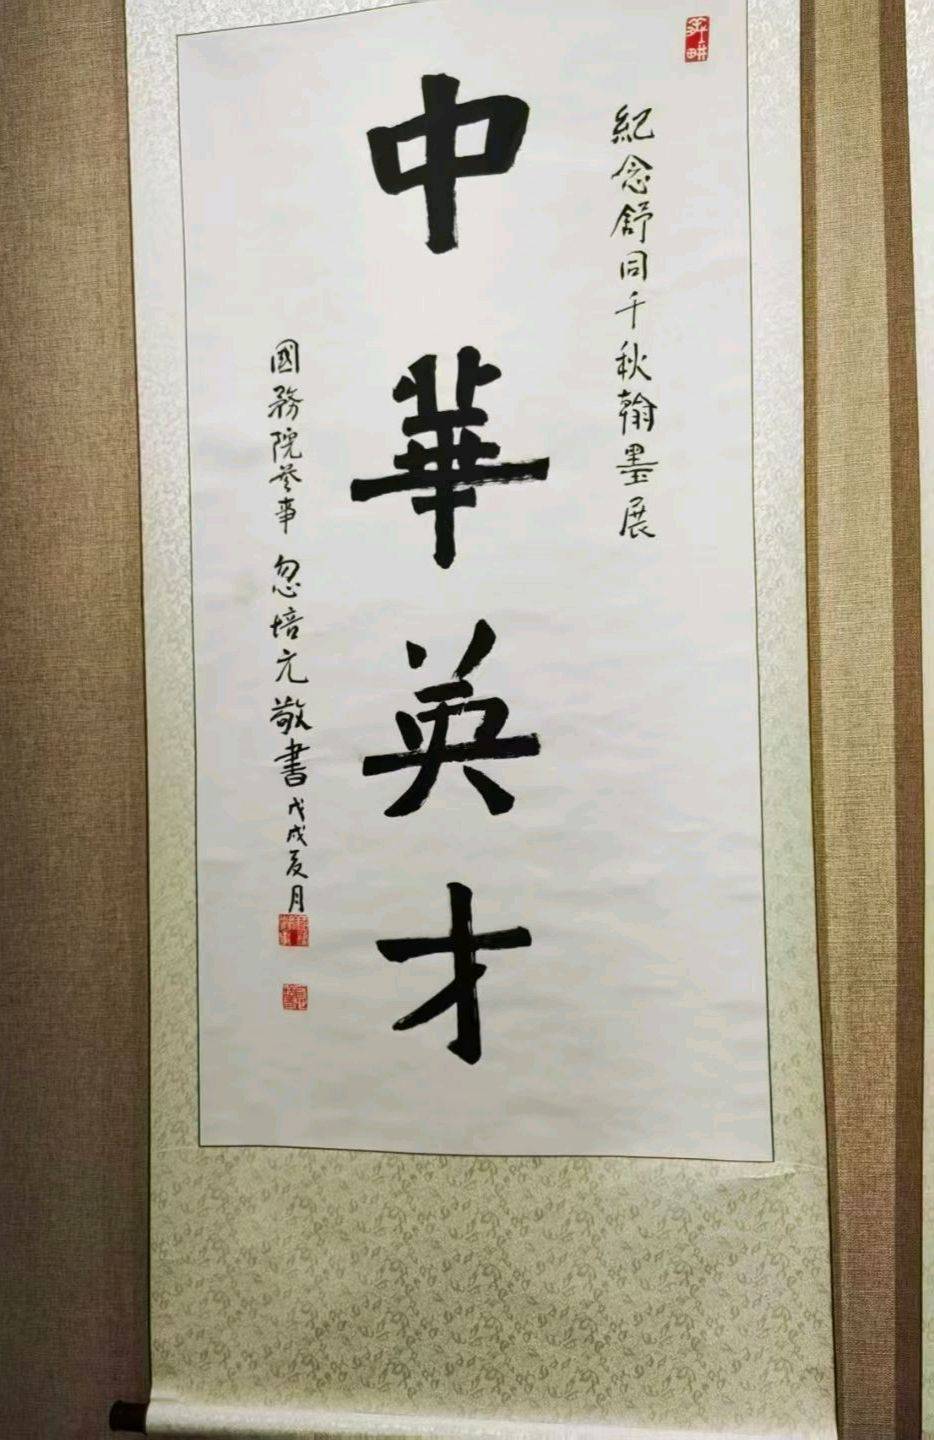 紀念舒同千秋翰墨展
中華英才
國務院參事 忽培元敬書戊戌夏月